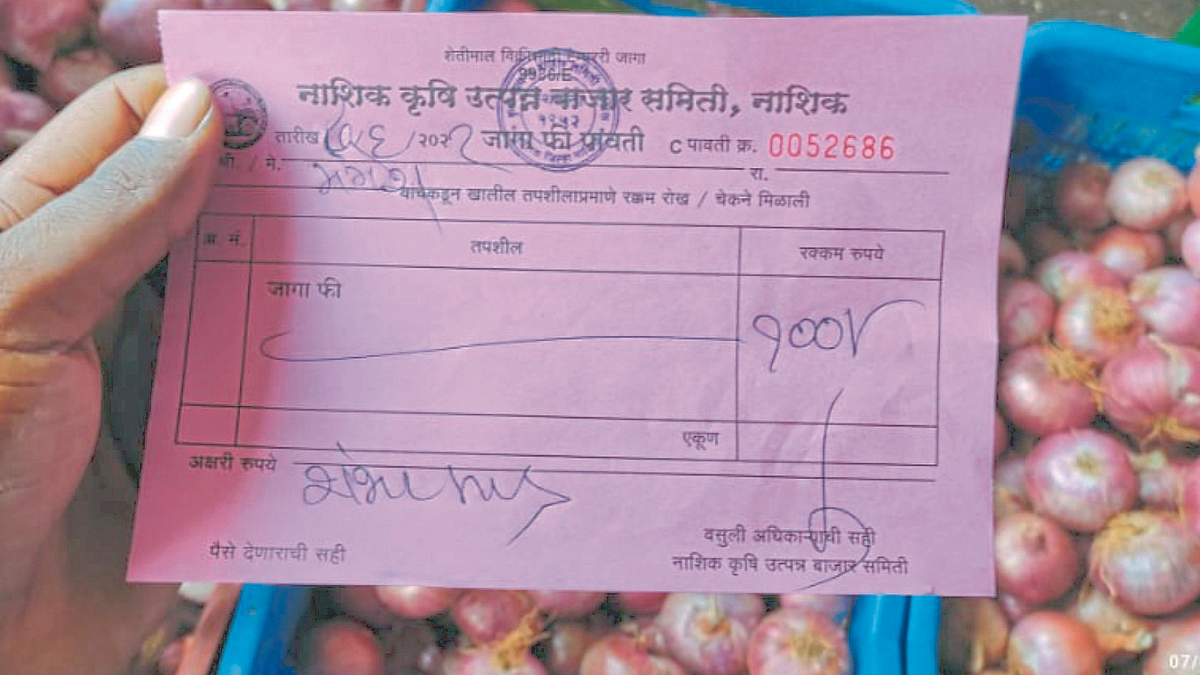 शेतीमाल विक्रीसाठी टेम्पररी जागा
नाशिक कृषि उत्पन्न बाजार समिती, नाशिक
तारीख /२०२२ जागा फी पावती C पावती क्र. 0052686
श्री. / मे. रा.
यांचेकडून खालील तपशीलाप्रमाणे रक्कम रोख / चेकने मिळाली
अ. नं. तपशील रक्कम रुपये
जागा फी १००/
एकूण
अक्षरी रुपये
वसुली अधिकाऱ्याची सही
पैसे देणाराची सही नाशिक कृषि उत्पन्न बाजार समिती
07/